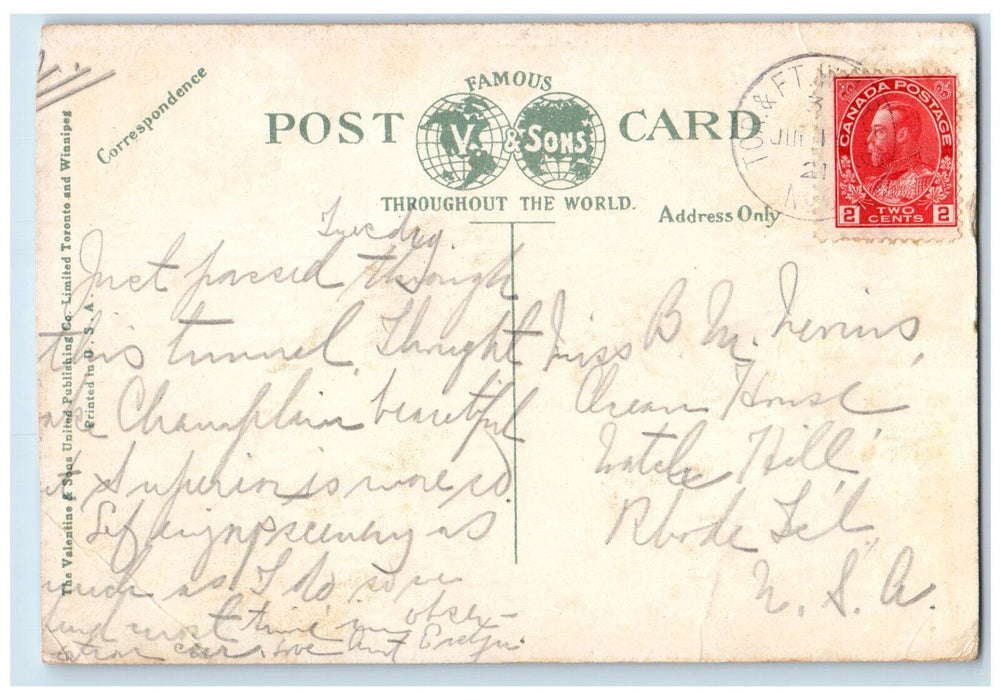 Correspondence
The Valentine & Sons United Publishing Co. Limited Toronto and Winnipeg
Printed in U. S. A.
FAMOUS
POST V. & SONS CARD
THROUGHOUT THE WORLD.
Address Only
CANADA POSTAGE
2 TWO CENTS 2
TOR. & FT. W
21
No
Tuesday.
Just passed through
this tunnel. Thought
Champlain beautiful
Superior is more so.
enjoy scenery as
much as I do so we
most time in obser-
ation car. Love Aunt Evelyn
Miss B. M. Nevins,
Ocean House
Watch Hill,
Rhode Isl.
U. S. A.